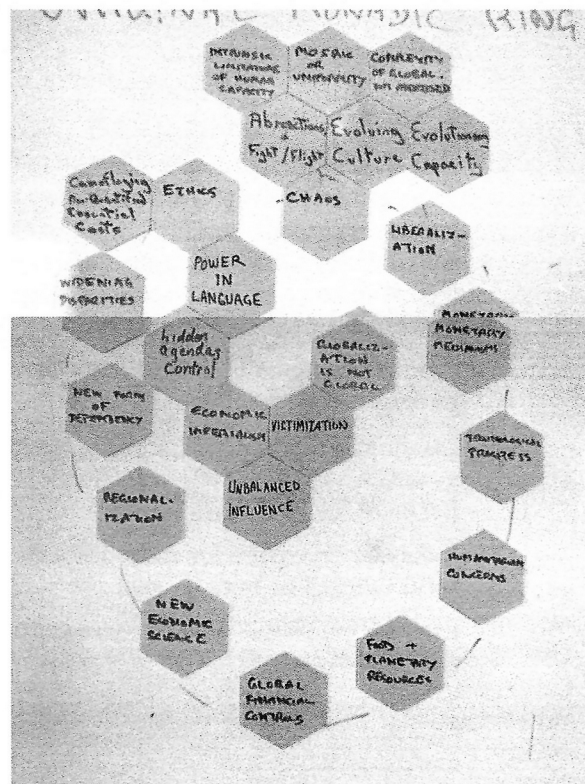 RING
INTRINSIC
LIMITATIONS
OF HUMAN
CAPACITY
MOSAIC
OR
UNIFORMITY
COMPLEXITY
OF GLOBAL-
Abreactions
+
Fight/Flight
Evolving
Culture
Evolutionary
Capacity
Essential
Costs
ETHICS
CHAOS
LIBERALIZ-
ATION
WIDENING
DISPARITIES
POWER
IN
LANGUAGE
MONETARY
hidden
agendas
Control
GLOBALIZ-
ATION
IS NOT
GLOBAL
NEW FORM
OF
DEPENDENCY
ECONOMIC
IMPERIALISM
VICTIMIZATION
TECHNOLOGICAL
PROGRESS
UNBALANCED
INFLUENCE
REGIONAL-
IZATION
HUMANITARIAN
CONCERNS
NEW
ECONOMIC
SCIENCE
FOOD +
PLANETARY
RESOURCES
GLOBAL
FINANCIAL
CONTROLS